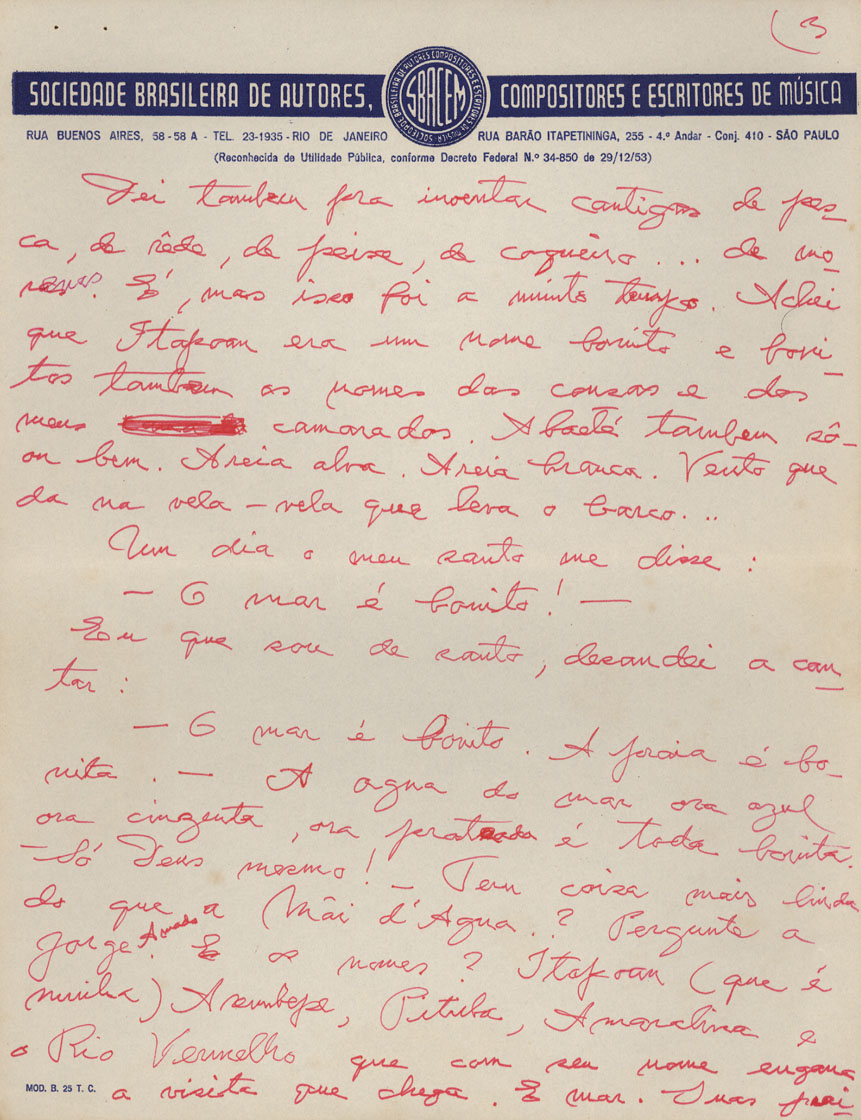 3
SOCIEDADE BRASILEIRA DE AUTORES, COMPOSITORES E ESCRITORES DE MÚSICA
SBACEM
SOCIEDADE BRASILEIRA DE AUTORES COMPOSITORES E ESCRITORES DE MUSICA
RUA BUENOS AIRES, 58-58 A - TEL. 23-1935 - RIO DE JANEIRO RUA BARÃO ITAPETININGA, 255 - 4.º Andar - Conj. 410 - SÃO PAULO
(Reconhecida de Utilidade Pública, conforme Decreto Federal N.º 34-850 de 29/12/53)
Dei tambem pra inventar cantigas de pes-
ca, de rêde, de peixe, de coqueiro... de mo-
renas. E', mas isso foi a muito tempo. Achei
que Itapoan era um nome bonito e boni-
tos tambem os nomes das cousas e dos
meus camaradas. Abaeté tambem sô-
ou bem. Areia alva. Areia branca. Vento que
da na vela – vela que leva o barco...
Um dia o meu santo me disse:
– O mar é bonito! –
Eu que sou de santo, desandei a can-
tar:
– O mar é bonito. A praia é bo-
nita. – A agua do mar ora azul
ora cinzenta, ora prateada é toda bonita.
– Só Deus mesmo! – Tem coisa mais linda
do que a Mãi d'Agua..? Pergunte a
Jorge Amado. E os nomes? Itapoan (que é
minha) Arembepe, Pituba, Amaralina e
o Rio Vermelho que com seu nome engana
a visita que chega. E mar. Duas prai-
MOD. B. 25 T. C.